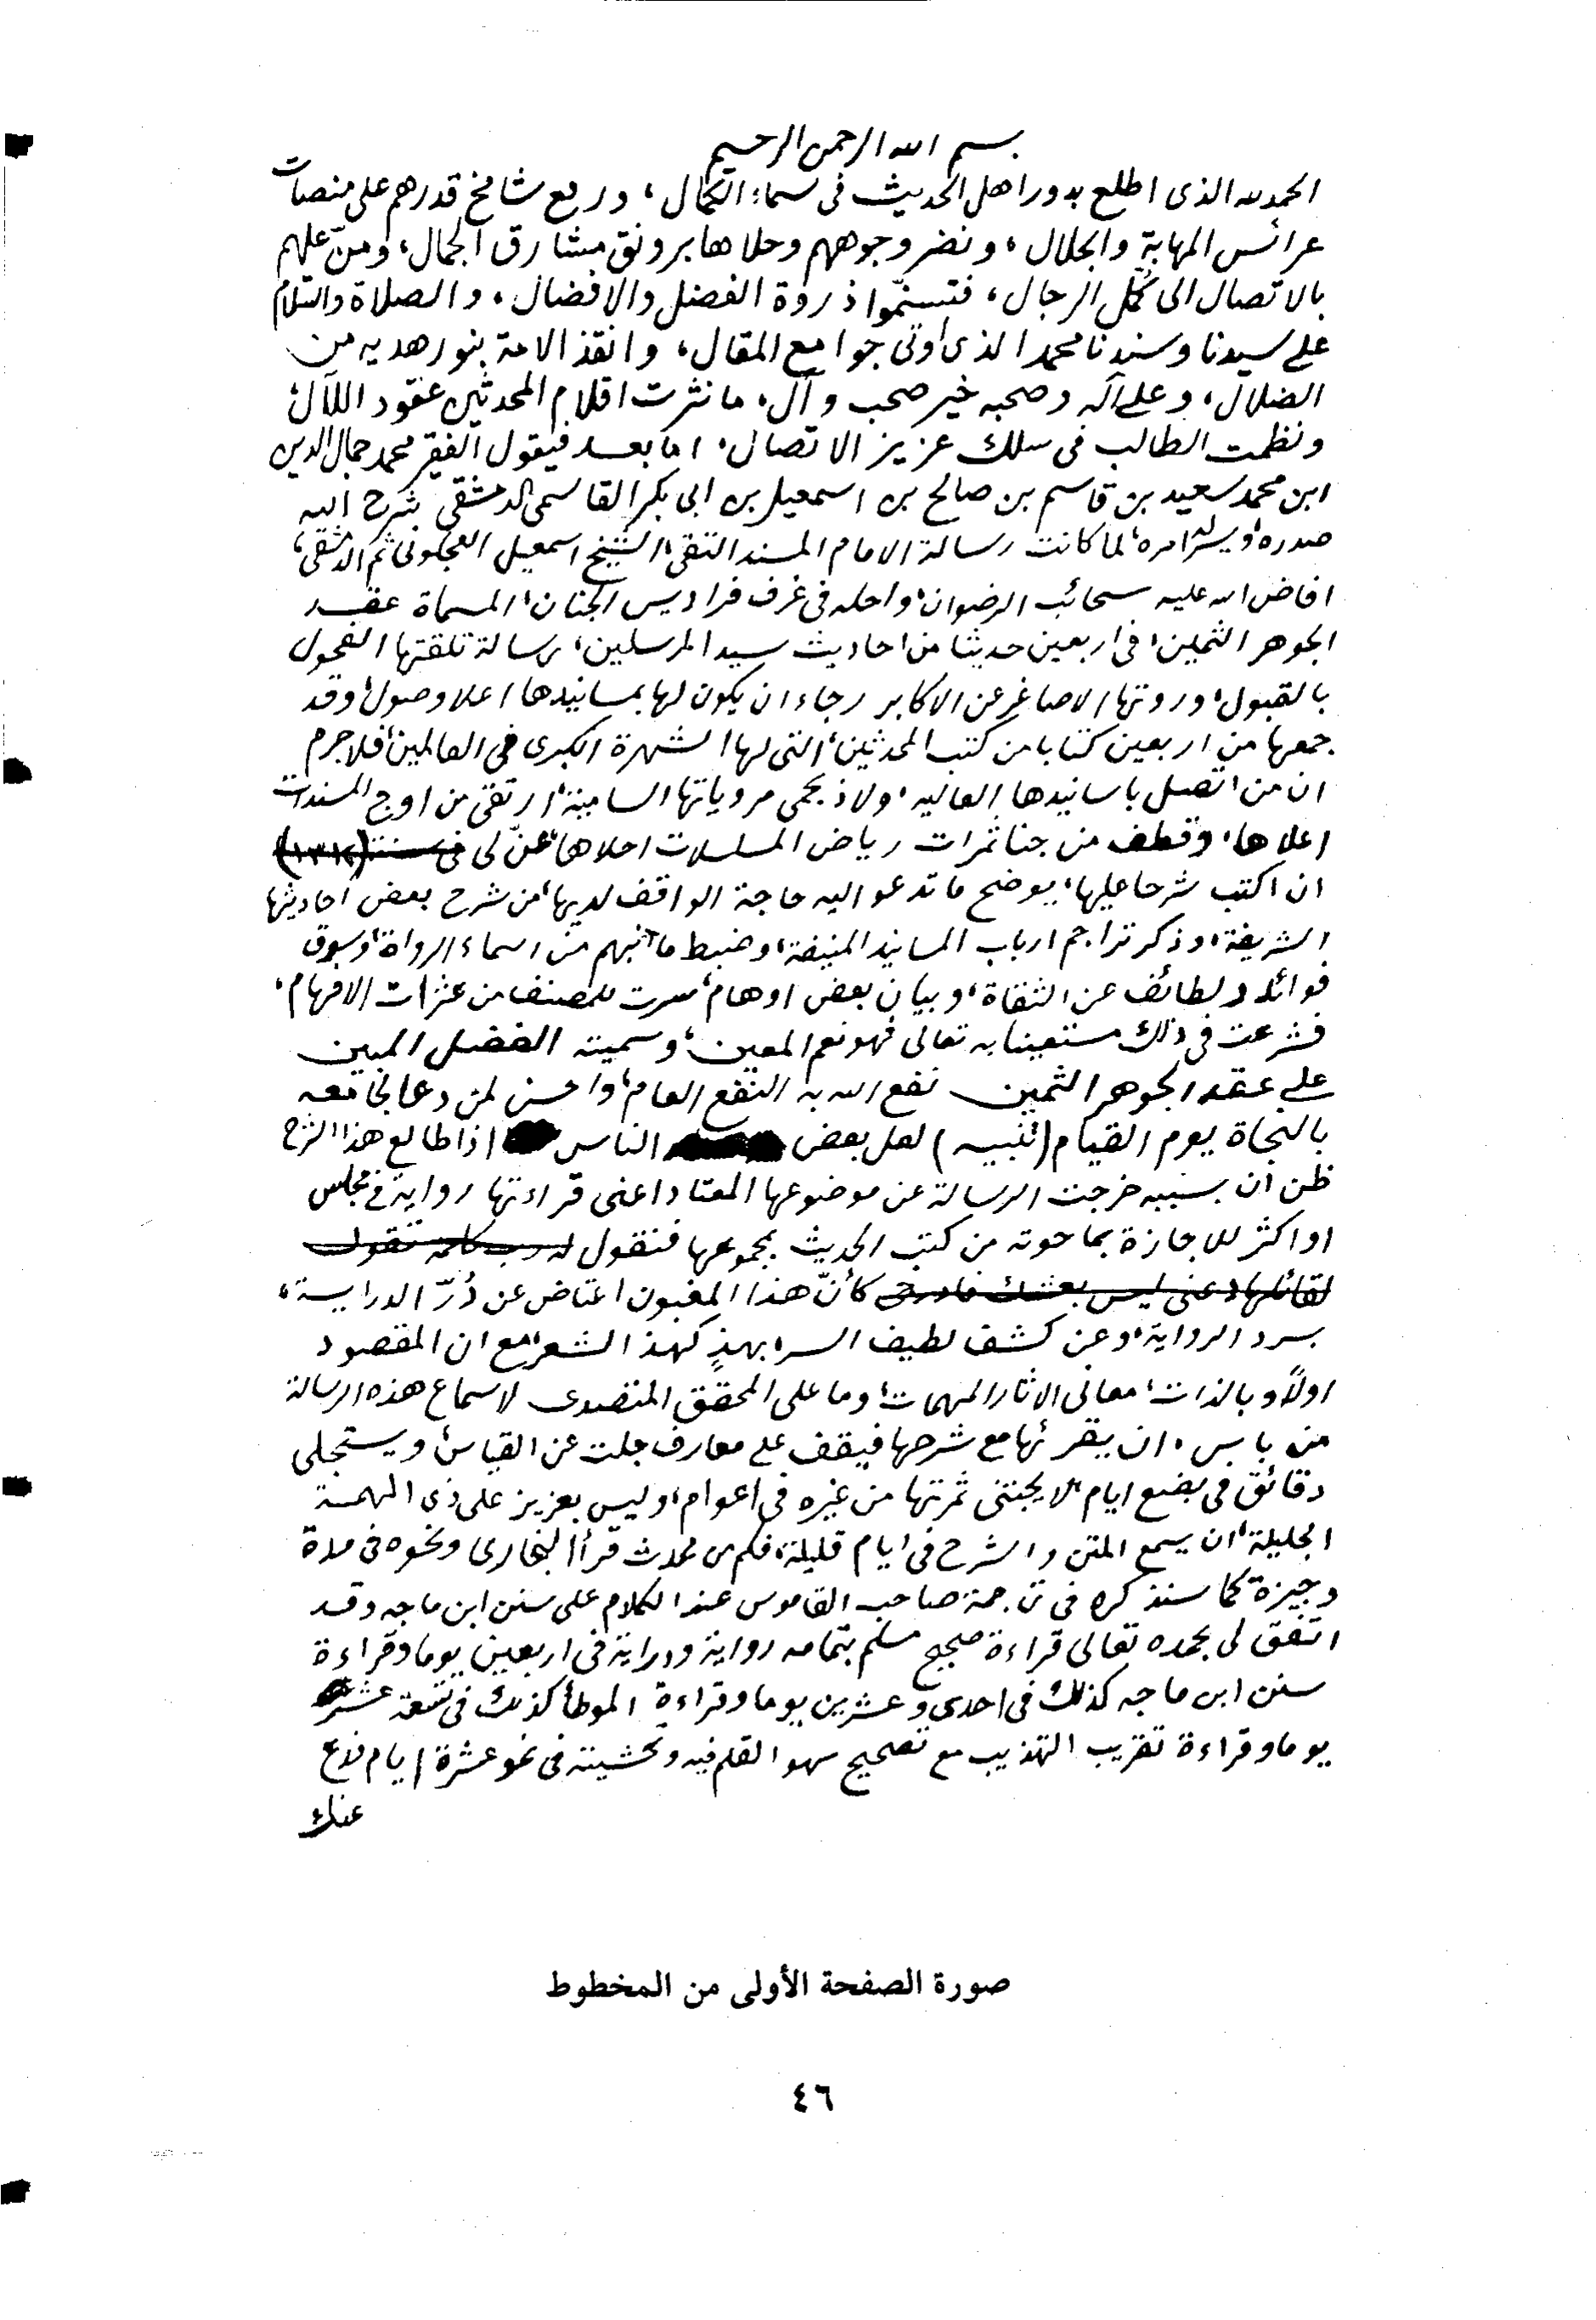 بسم الله الرحمن الرحيم
الحمد لله الذى اطلع بدور اهل الحديث فى سماء الكمال، ورفع شامخ قدرهم على منصات
عرائس المهابة والجلال، ونضر وجوههم وحلاها برونق مشارق الجمال، ومنّ عليهم
بالاتصال الى كُمّل الرجال، فتسنّموا ذروة الفضل والافضال، والصلاة والسّلام
على سيدنا وسندنا محمد الذى أوتى جوامع المقال، وانقذ الامة بنور هديه من
الضلال، وعلى آله وصحبه خير صحب وآل، ما نثرت اقلام المحدثين عقود اللآل
ونظمت الطالب فى سلك عزيز الاتصال، اما بعد فيقول الفقير محمد جمال الدين
ابن محمد سعيد بن قاسم بن صالح بن اسمعيل بن ابى بكر القاسمى الدمشقى شرح الله
صدره، ويسر له امره، لما كانت رسالة الامام المسند التقى، الشيخ اسمعيل العجلونى ثم الدمشقى،
افاض الله عليه سحائب الرضوان، واحله فى غرف فراديس الجنان، المسماة عقد
الجوهر الثمين، فى اربعين حديثا من احاديث سيد المرسلين، رسالة تلقتها الفحول
بالقبول، وروتها الاصاغر عن الاكابر رجاء ان يكون لها بمسانيدها اعلا وصول، وقد
جمعها من اربعين كتابا من كتب المحدثين، التى لها الشهرة الكبرى فى العالمين، فلا جرم
ان من اتصل باسانيدها العاليه، ولاذ بحمى مروياتها السامية، ارتقى من اوج المسندات
اعلاها، وقطف من جنا ثمرات رياض المسلسلات احلاها، عنّ لى فى سنة
ان اكتب شرحا عليها، يوضح ما تدعو اليه حاجة الواقف لديها، من شرح بعض احاديثها
الشريفة، وذكر تراجم ارباب المسانيد المنيفة، وضبط ما انبهم من اسماء الرواة، وسوق
فوائد ولطائف عن الثقاة، وبيان بعض اوهام، سرت للمصنف من عثرات الافهام،
فشرعت فى ذلك مستعينا به تعالى فهو نعم المعين، وسميته الفضل المبين
على عقد الجوهر الثمين نفع الله به النفع العام، واحسن لمن دعا لجامعه
بالنجاة يوم القيام (تنبيه) لعل بعض الناس اذا طالع هذا الشرح
ظن ان بسببه خرجت الرسالة عن موضوعها المعتاد اعنى قراءتها رواية فى مجلس
او اكثر للاجازة بما حوته من كتب الحديث بمجموعها فنقول له رب كلمة تقول
لقائلها دعنى ليس بعشك فادرجى كأنّ هذا المغبون اعتاض عن دُرّ الدراية،
بسرد الرواية، وعن كشف لطيف السر، بهذٍ كهذ الشعر، مع ان المقصود
اولاً وبالذات، معانى الاثار المهمات، وما على المحقق المتصدى لاسماع هذه الرسالة
من باس، ان يقرئها مع شرحها فيقف على معارف جلت عن القياس، ويستجلى
دقائق فى بضع ايام، لا يجتنى ثمرتها من غيره فى اعوام، وليس بعزيز على ذى الهمة
الجليلة، ان يسمع المتن والشرح فى ايام قليلة، فكم من محدث قرأ البخارى ونحوه فى مدة
وجيزة كما سنذكره فى ترجمة صاحب القاموس عند الكلام على سنن ابن ماجه وقد
اتفق لى بحمده تعالى قراءة صحيح مسلم بتمامه رواية ودراية فى اربعين يوما وقراءة
سنن ابن ماجه كذلك فى احدى وعشرين يوما وقراءة الموطأ كذلك فى تسعة عشر
يوما وقراءة تقريب التهذيب مع تصحيح سهو القلم فيه وتحشيته فى نحو عشرة ايام فدع
عنك
صورة الصفحة الأولى من المخطوط
٤٦